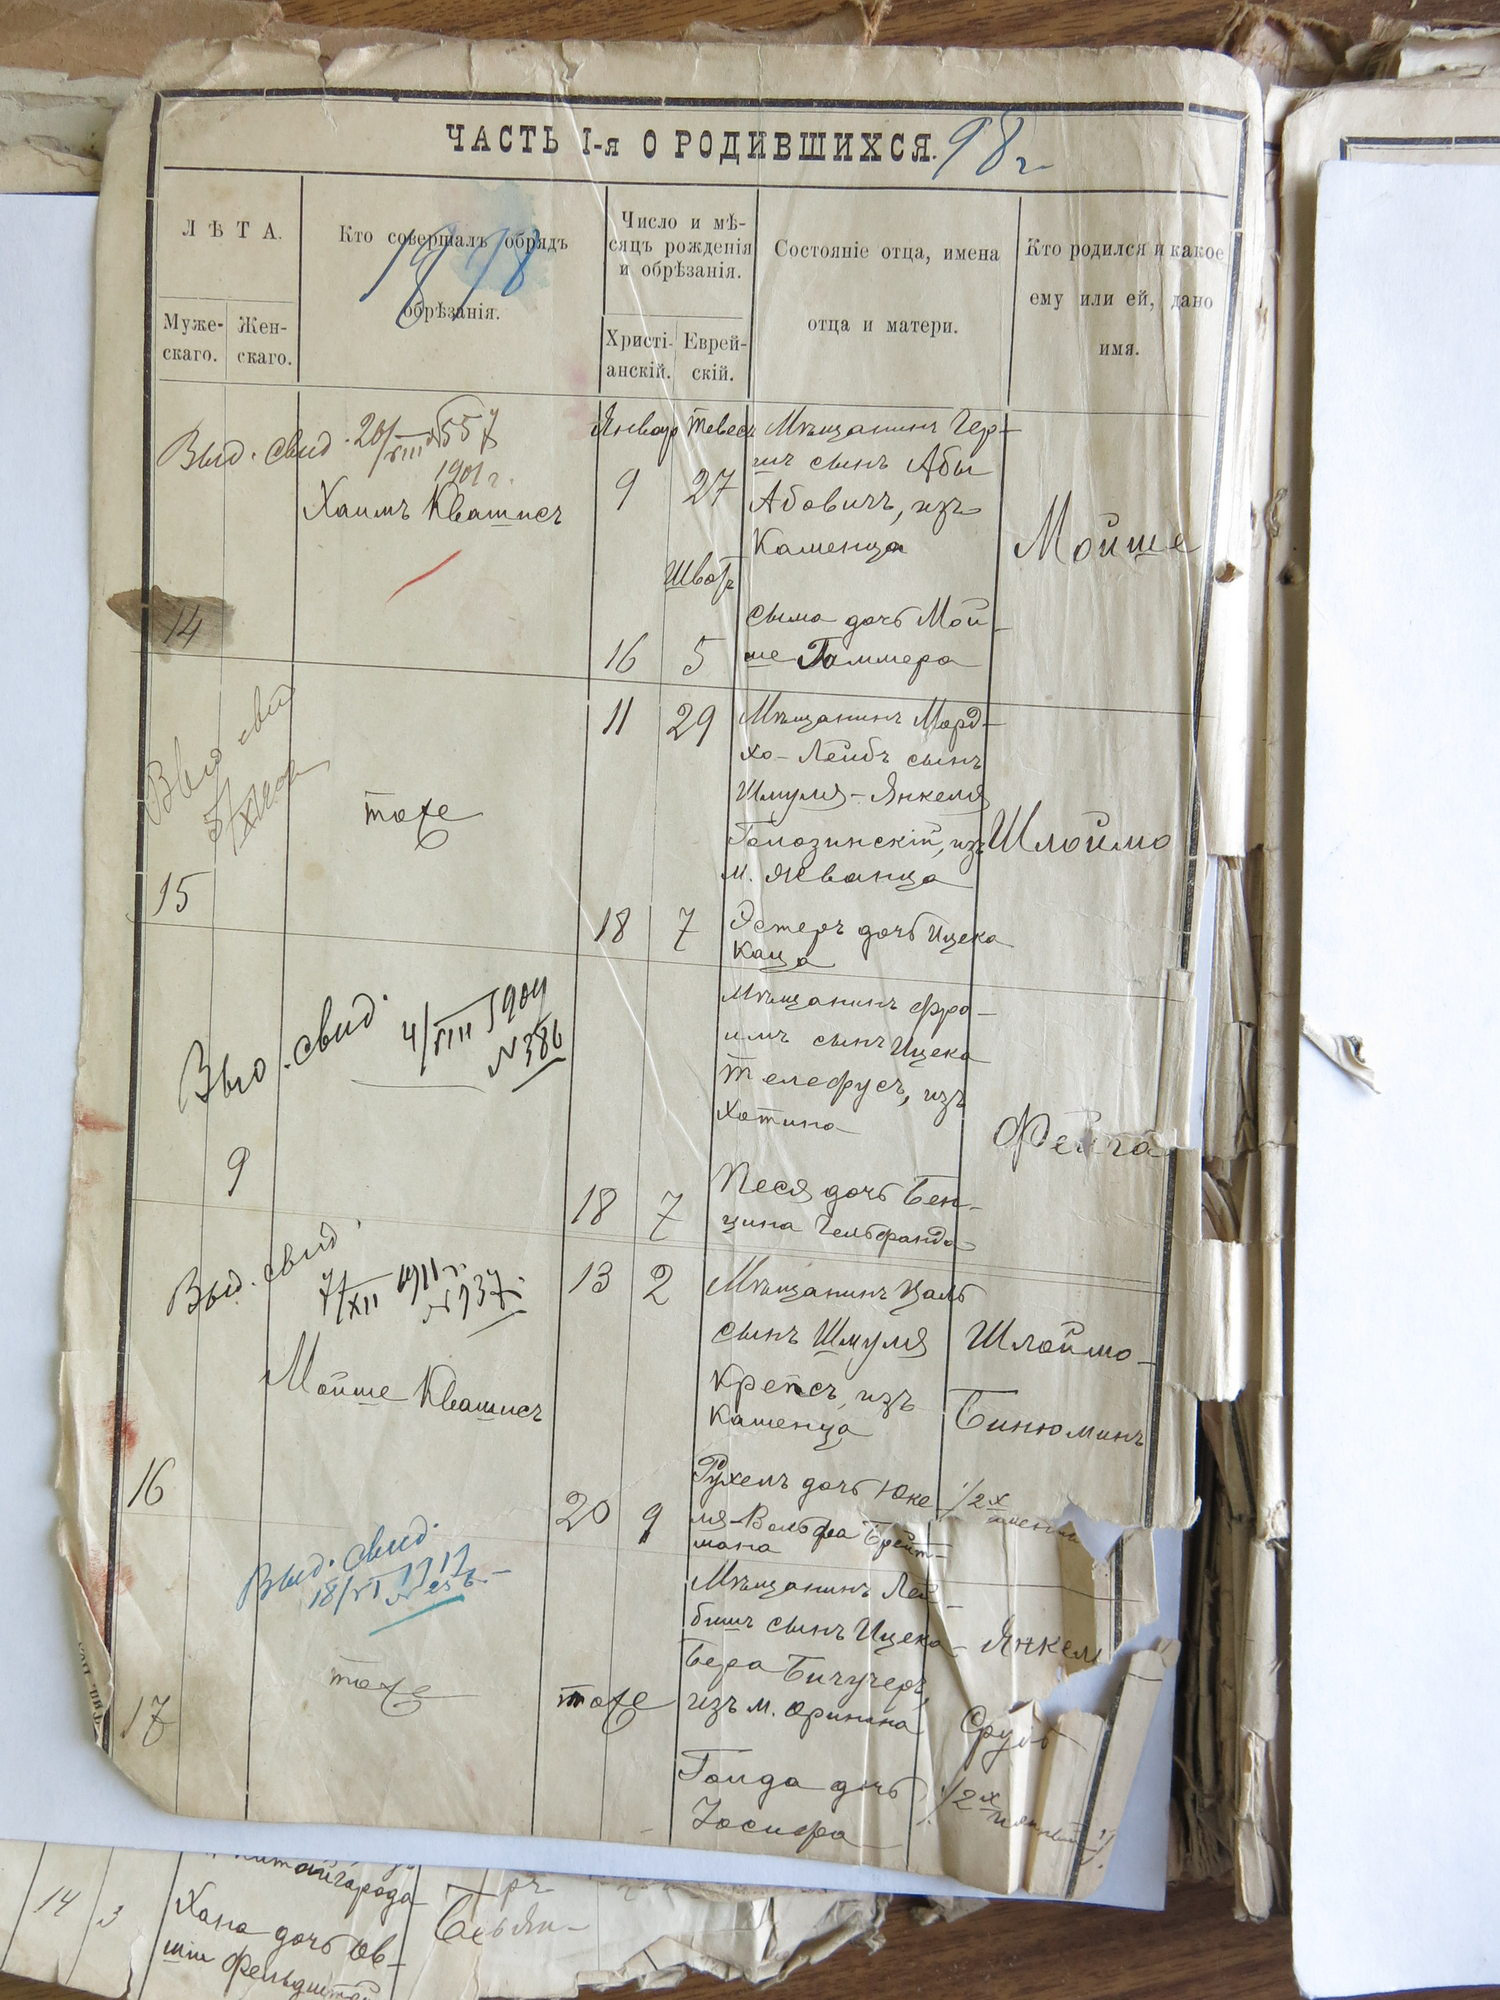 ЧАСТЬ I-я О РОДИВШИХСЯ. 98 г
ЛѢТА.
Муже-
скаго.
Жен-
скаго.
Кто совершалъ обрядъ
обрѣзанія.
Число и мѣ-
сяцъ рожденія
и обрѣзанія.
Христі-
анскій.
Еврей-
скій.
Состояніе отца, имена
отца и матери.
Кто родился и какое
ему или ей, дано
имя.
Выд. свид. 20/VIII №557
1901 г.
Хаимъ Квашисъ
14
Январ Тевесъ
9 27
Шват
16 5
Мѣщанинъ Гер-
шъ сынъ Абы
Абовичъ, изъ
Каменца
Сыма дочь Мой-
ше Гаммера
Мойше
Выд свид
15
тоже
11 29
18 7
Мѣщанинъ Морд-
хо-Лейбъ сынъ
Шмуля-Янкеля
Голозинскій, изъ
м. Жванца
Эстеръ дочь Ицека
Каца
Шлоймо
Выд. свид. 4/VIII 1904
№386
9
18 7
Мѣщанинъ Фро-
имъ сынъ Ицека
Телефусъ, изъ
Хотина
Песя дочь Бен-
циона Гельфанда
Фейга
Выд. свид.
7/XII 1911 г.
№937.
Мойше Квашисъ
16
13 2
20 9
Мѣщанинъ Цаль
сынъ Шмуля
Крепсъ, изъ
Каменца
Рухель дочь Юке
ля-Вольфа Брейт-
мана
Шлоймо-
Бинюминъ
/2х
имени
Выд. свид.
18/VI 1912
17
тоже
тоже
Мѣщанинъ Лей-
бишъ сынъ Ицека-
Бера Бичучеръ,
изъ м. Оринина
Голда дочь
Іосифа
Янкель
Сруль
/2х
имени/
Китайгорода
14 3
Хана дочь Ов-
шіи Фельдштей